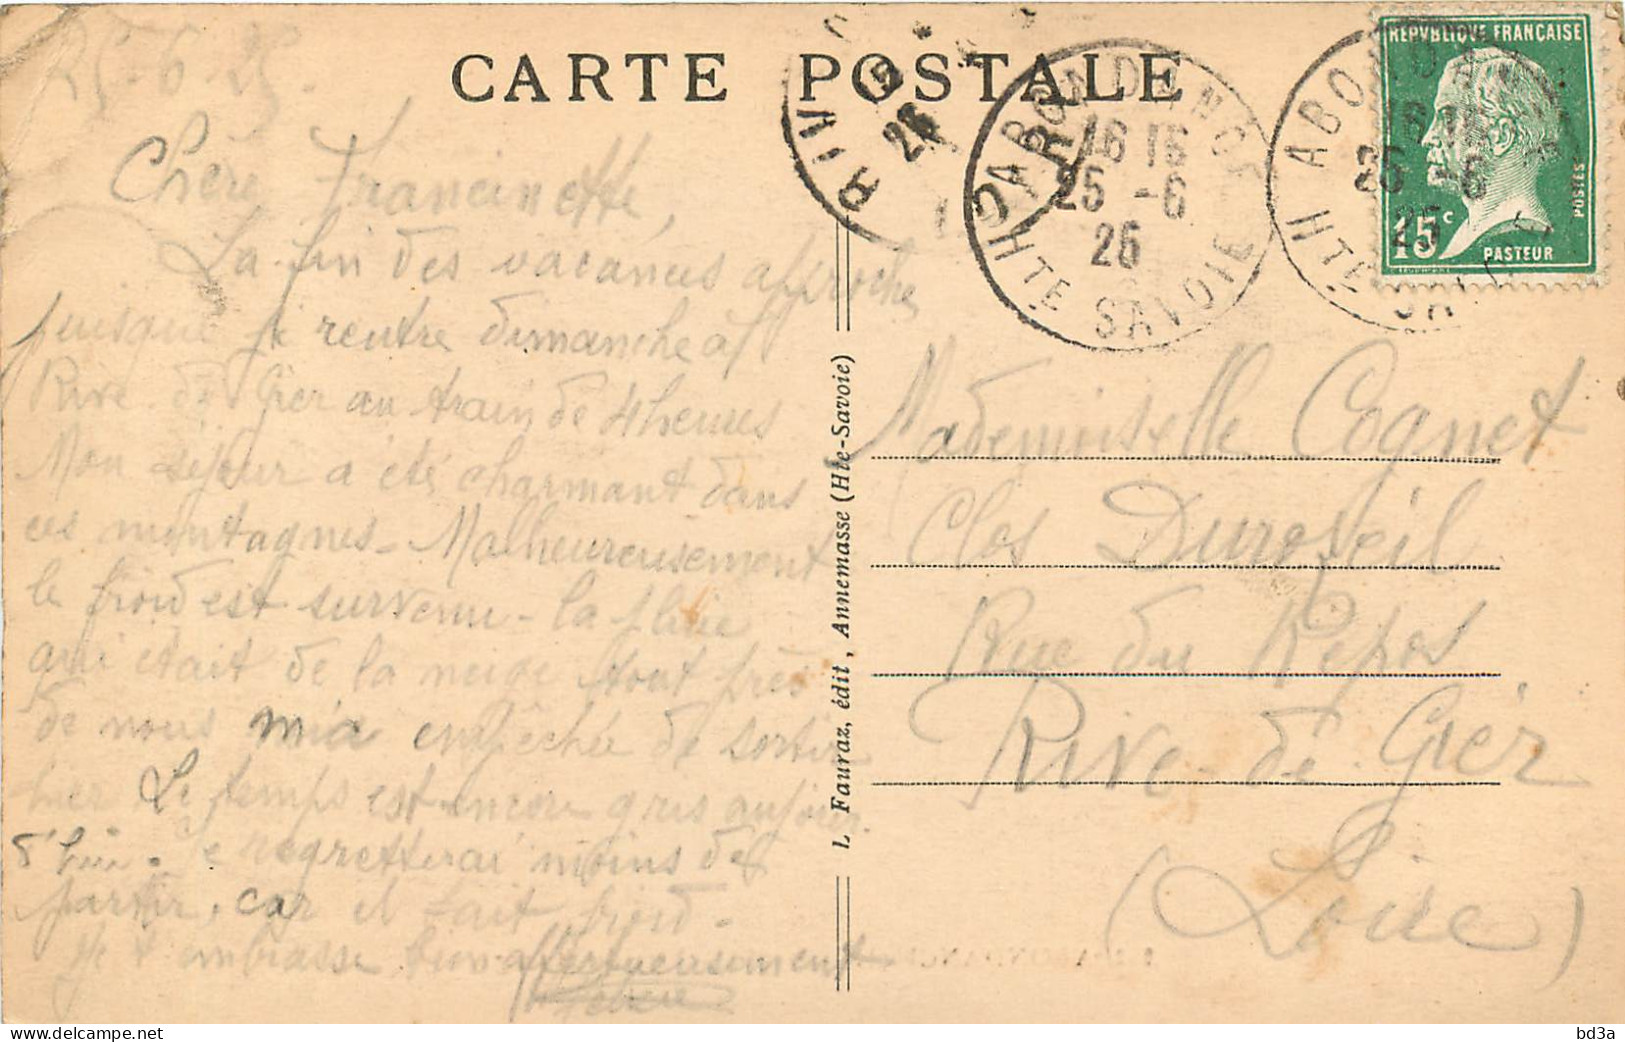 CARTE POSTALE
25-6-25.
Chère Francinette,
La fin des vacances approche
puisque je rentre dimanche à
Rive de Gier au train de 4 heures
Mon séjour a été charmant dans
ces montagnes - Malheureusement
le froid est survenu - la pluie
qui était de la neige tout près
de nous m'a empêchée de sortir
hier Le temps est encore gris aujour.
d'hui. Je regretterai moins de
partir, car il fait froid -
Je t'embrasse bien affectueusement
L. Fauraz, édit, Annemasse (Hte-Savoie)
RIV
15
26
ABONDANCE
16 15
25 -6
25
HTE SAVOIE
ABONDANCE
16 15
25 -6
25
HTE SAVOIE
REPVBLIQVE FRANÇAISE
POSTES
15c
PASTEUR
Mademoiselle Cognet
Clos Duroseil
Rue du Repos
Rive-de-Gier
(Loire)
bd3a